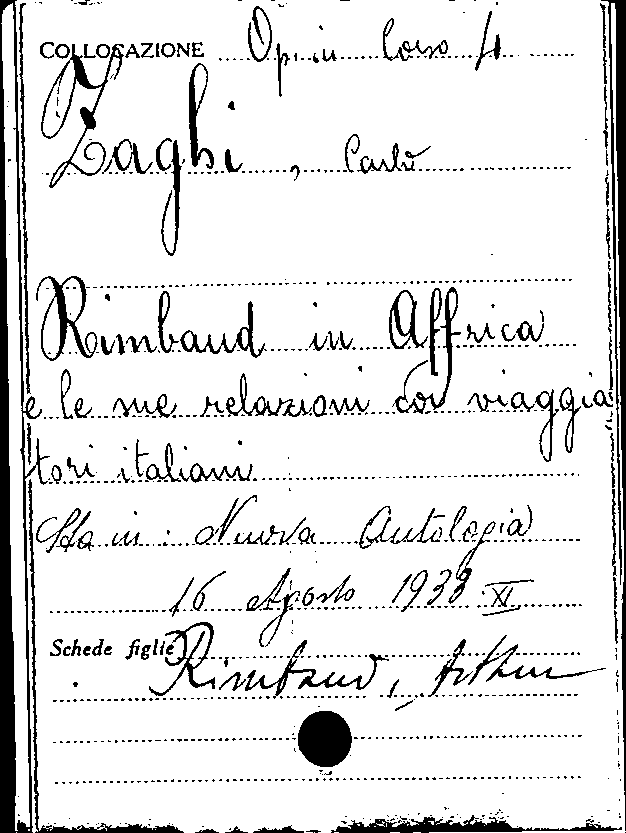 COLLOCAZIONE Opin Corso 4
Zaghi, Carlo
Rimbaud in Affrica
e le sue relazioni con viaggia
tori italiani
Sta in: Nuova Antologia
16 Agosto 1933 XI
Schede figlie
Rimbaud, Arthur